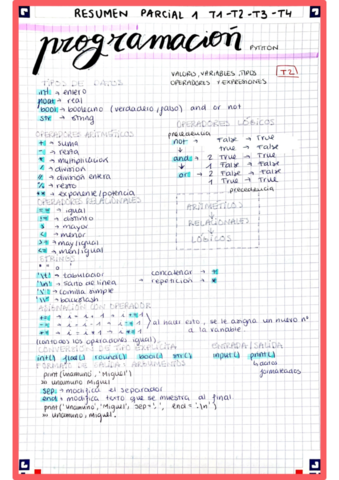 RESUMEN PARCIAL 1 T1-T2-T3-T4
programación PYTHON
VALORES, VARIABLES, TIPOS T2
OPERADORES Y EXPRESIONES
TIPOS DE DATOS
int → entero
float → real
bool → booleano (verdadero/falso) and or not
str → string
OPERADORES LÓGICOS
precedencia
not → False → True
True → False
and → 2 True → True
1 False → False
or → 2 False → False
1 True → True
precedencia
ARITMÉTICOS
RELACIONALES
LÓGICOS
OPERADORES ARITMÉTICOS
+ → suma
- → resta
* → multiplicación
/ → división
// → división entera
% → resto
** → exponente/potencia
OPERADORES RELACIONALES
== → igual
!= → distinto
> → mayor
< → menor
>= → may/igual
<= → men/igual
STRINGS
" " o ' '
\t → tabulador
\n → salto de línea
\' → comilla simple
\\ → backslash
concatenar → +
repetición → *
ASIGNACIÓN CON OPERADOR
al hacer esto, se le asigna un nuevo nº
a la variable
(con todos los operadores igual)
CONVERSIÓN DE TIPO EXPLÍCITA
int() float() round() bool() str()
ENTRADA/SALIDA
input() print()
datos
formateados
FORMATO DE SALIDA: ARGUMENTOS
print('Unamuno', 'Miguel')
>> unamuno Miguel
sep: modifica el separador
end: modifica texto que se muestra al final
print('Unamuno', 'Miguel', sep=', ', end='.\n')
>> unamuno, Miguel.